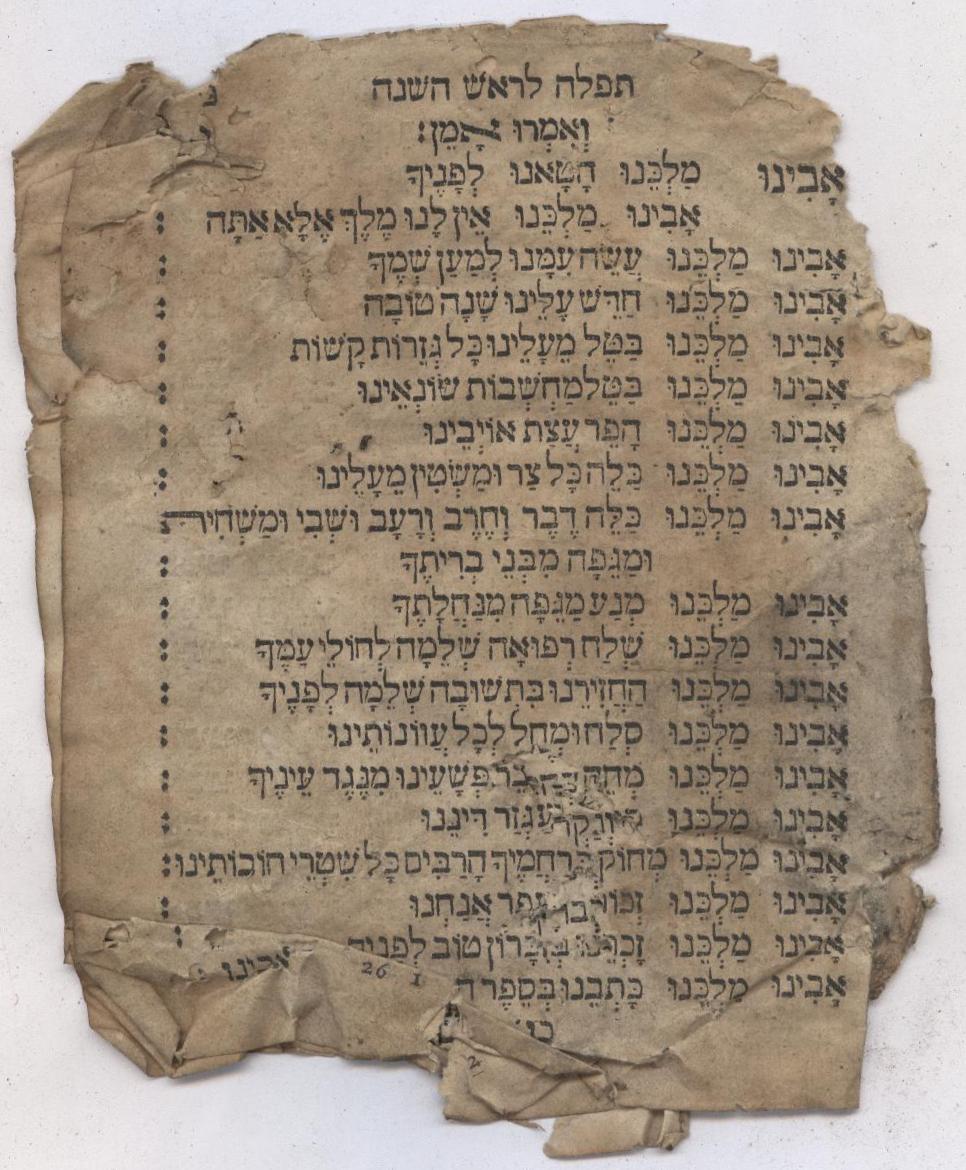 תפלה לראש השנה
וְאִמְרוּ אָמֵן:
אָבִינוּ מַלְכֵּנוּ חָטָאנוּ לְפָנֶיךָ
אָבִינוּ מַלְכֵּנוּ אֵין לָנוּ מֶלֶךְ אֶלָּא אַתָּה :
אָבִינוּ מַלְכֵּנוּ עֲשֵׂה עִמָּנוּ לְמַעַן שְׁמֶךָ :
אָבִינוּ מַלְכֵּנוּ חַדֵּשׁ עָלֵינוּ שָׁנָה טוֹבָה :
אָבִינוּ מַלְכֵּנוּ בַּטֵּל מֵעָלֵינוּ כָּל גְּזֵרוֹת קָשׁוֹת :
אָבִינוּ מַלְכֵּנוּ בַּטֵּל מַחְשְׁבוֹת שׂוֹנְאֵינוּ :
אָבִינוּ מַלְכֵּנוּ הָפֵר עֲצַת אוֹיְבֵינוּ :
אָבִינוּ מַלְכֵּנוּ כַּלֵּה כָּל צַר וּמַשְׂטִין מֵעָלֵינוּ :
אָבִינוּ מַלְכֵּנוּ כַּלֵּה דֶבֶר וְחֶרֶב וְרָעָב וּשְׁבִי וּמַשְׁחִית
וּמַגֵּפָה מִבְּנֵי בְרִיתֶךָ :
אָבִינוּ מַלְכֵּנוּ מְנַע מַגֵּפָה מִנַּחֲלָתֶךָ :
אָבִינוּ מַלְכֵּנוּ שְׁלַח רְפוּאָה שְׁלֵמָה לְחוֹלֵי עַמֶּךָ :
אָבִינוּ מַלְכֵּנוּ הַחֲזִירֵנוּ בִּתְשׁוּבָה שְׁלֵמָה לְפָנֶיךָ :
אָבִינוּ מַלְכֵּנוּ סְלַח וּמְחַל לְכָל עֲוֹנוֹתֵינוּ :
אָבִינוּ מַלְכֵּנוּ פְּשָׁעֵינוּ מִנֶּגֶד עֵינֶיךָ :
אָבִינוּ מַלְכֵּנוּ גְּזַר דִּינֵנוּ :
אָבִינוּ מַלְכֵּנוּ מְחוֹק בְּרַחֲמֶיךָ הָרַבִּים כָּל שִׁטְרֵי חוֹבוֹתֵינוּ :
אָבִינוּ מַלְכֵּנוּ זְכוֹר אֲנַחְנוּ :
אָבִינוּ מַלְכֵּנוּ זָכְרֵנוּ בְּזִכְרוֹן טוֹב לְפָנֶיךָ :
אָבִינוּ מַלְכֵּנוּ כָּתְבֵנוּ בְּסֵפֶר
26
אבינו